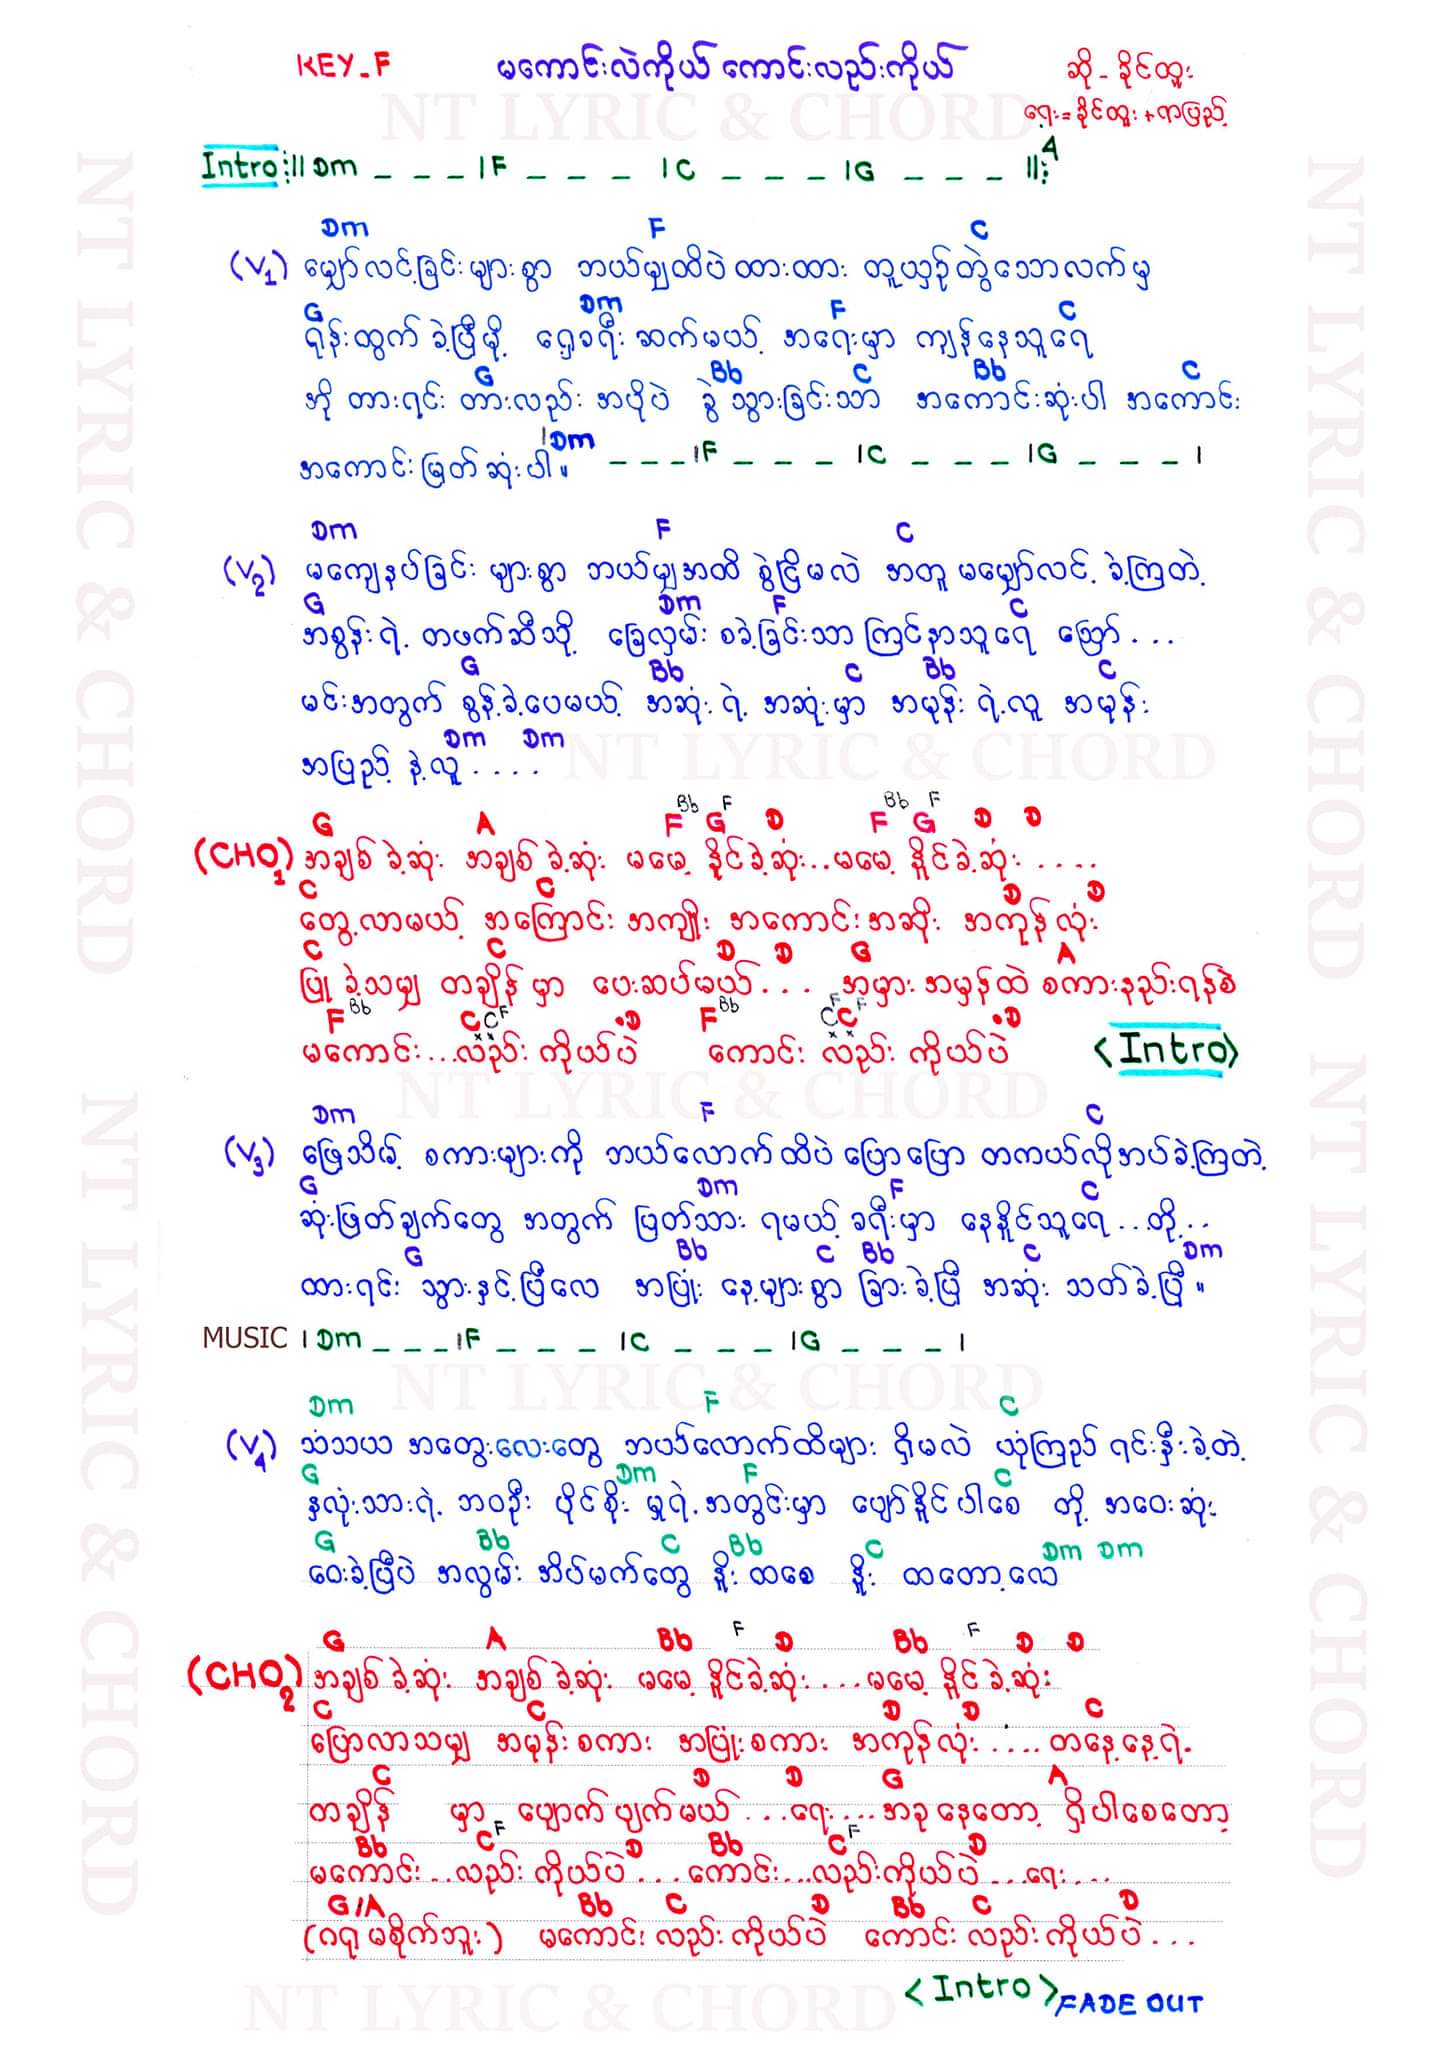 KEY_F မကောင်းလဲကိုယ် ကောင်းလည်းကိုယ် ဆို - ခိုင်ထူး
NT LYRIC & CHORD
ရေး = ခိုင်ထူး + ကပြည့်
Intro :|| Dm _ _ _ | F _ _ _ | C _ _ _ | G _ _ _ ||: 4
Dm F C
(V1) မျှော်လင့်ခြင်းများစွာ ဘယ်မျှထိပဲ ထားထား တူယှဉ်တွဲသောလက်မှ
G Dm F C
ရုန်းထွက်ခဲ့ပြီမို့ ရှေ့ခရီး ဆက်မယ့် အရေးမှာ ကျန်နေသူရေ
G Bb C Bb C
ဘို တားရင်း တားလည်း အပိုပဲ ခွဲသွားခြင်းသာ အကောင်းဆုံးပါ အကောင်း
အကောင်းမြတ်ဆုံးပါ။ | Dm _ _ _ | F _ _ _ | C _ _ _ | G _ _ _ |
Dm F C
(V2) မကျေနပ်ခြင်း များစွာ ဘယ်မျှအထိ စွဲငြိမလဲ အတူ မမျှော်လင့်ခဲ့ကြတဲ့
G Dm F C
အစွန်းရဲ့ တဖက်ဆီသို့ ခြေလှမ်း စခဲ့ခြင်းသာ ကြင်နာသူရေ ဩော်...
G Bb C Bb C
မင်းအတွက် စွန့်ခဲ့ပေမယ့် အဆုံးရဲ့ အဆုံးမှာ အမုန်းရဲ့လူ အမုန်း
Dm Dm
အပြည့်နဲ့လူ....
NT LYRIC & CHORD
Bb F Bb F
G A F G D F G D D
(CHO1) အချစ်ခဲ့ဆုံး အချစ်ခဲ့ဆုံး မမေ့နိုင်ခဲ့ဆုံး...မမေ့နိုင်ခဲ့ဆုံး....
C C D D
တွေ့လာမယ့် အကြောင်းအကျိုး အကောင်းအဆိုး အကုန်လုံး
C C D D G A
ပြုခဲ့သမျှ တချိန်မှာ ပေးဆပ်မယ်... အမှားအမှန်ထဲ စကားနည်းရန်စဲ
F Bb C C F D F Bb C F C F D
မကောင်း...လည်းကိုယ်ပဲ ကောင်းလည်းကိုယ်ပဲ <Intro>
NT LYRIC & CHORD
Dm F C
(V3) ဖြေသိမ့်စကားများကို ဘယ်လောက်ထိပဲ ပြောပြော တကယ်လိုအပ်ခဲ့ကြတဲ့
G Dm F C
ဆုံးဖြတ်ချက်တွေ အတွက် ဖြတ်သားရမယ့် ခရီးမှာ နေနိုင်သူရေ...တို့..
G Bb C Bb C Dm
ထားရင်း သွားနှင့်ပြီလေ အပြုံးနေ့များစွာ ခြားခဲ့ပြီ အဆုံးသတ်ခဲ့ပြီ။
MUSIC | Dm _ _ _ | F _ _ _ | C _ _ _ | G _ _ _ |
NT LYRIC & CHORD
Dm F C
(V4) သံသယ အတွေးလေးတွေ ဘယ်လောက်ထိများ ရှိမလဲ ယုံကြည်ရင်းနှီးခဲ့တဲ့
G Dm F C
နှလုံးသားရဲ့ ဘဝဦး ပိုင်စိုးမှုရဲ့အတွင်းမှာ ပျော်နိုင်ပါစေ တို့ အဝေးဆုံး
G Bb C Bb C Dm Dm
ဝေးခဲ့ပြီပဲ အလွမ်းအိပ်မက်တွေ နိုးထစေ နိုးထတော့လေ
G A Bb F D Bb F D D
(CHO2) အချစ်ခဲ့ဆုံး အချစ်ခဲ့ဆုံး မမေ့နိုင်ခဲ့ဆုံး....မမေ့နိုင်ခဲ့ဆုံး
C C D D C
ပြောလာသမျှ အမုန်းစကား အပြုံးစကား အကုန်လုံး.... တနေ့နေ့ရဲ့
C D D G A
တချိန် မှာ ပျောက်ပျက်မယ်...ရေး....အခုနေတော့ ရှိပါစေတော့
Bb C F D Bb C F D
မကောင်း...လည်းကိုယ်ပဲ...ကောင်း...လည်းကိုယ်ပဲ...ရေး...
G/A Bb C D Bb C D
(ဂရုမစိုက်ဘူး) မကောင်းလည်းကိုယ်ပဲ ကောင်းလည်းကိုယ်ပဲ...
<Intro> FADE OUT
NT LYRIC & CHORD
NT LYRIC & CHORD
NT LYRIC & CHORD
NT LYRIC & CHORD
NT LYRIC & CHORD